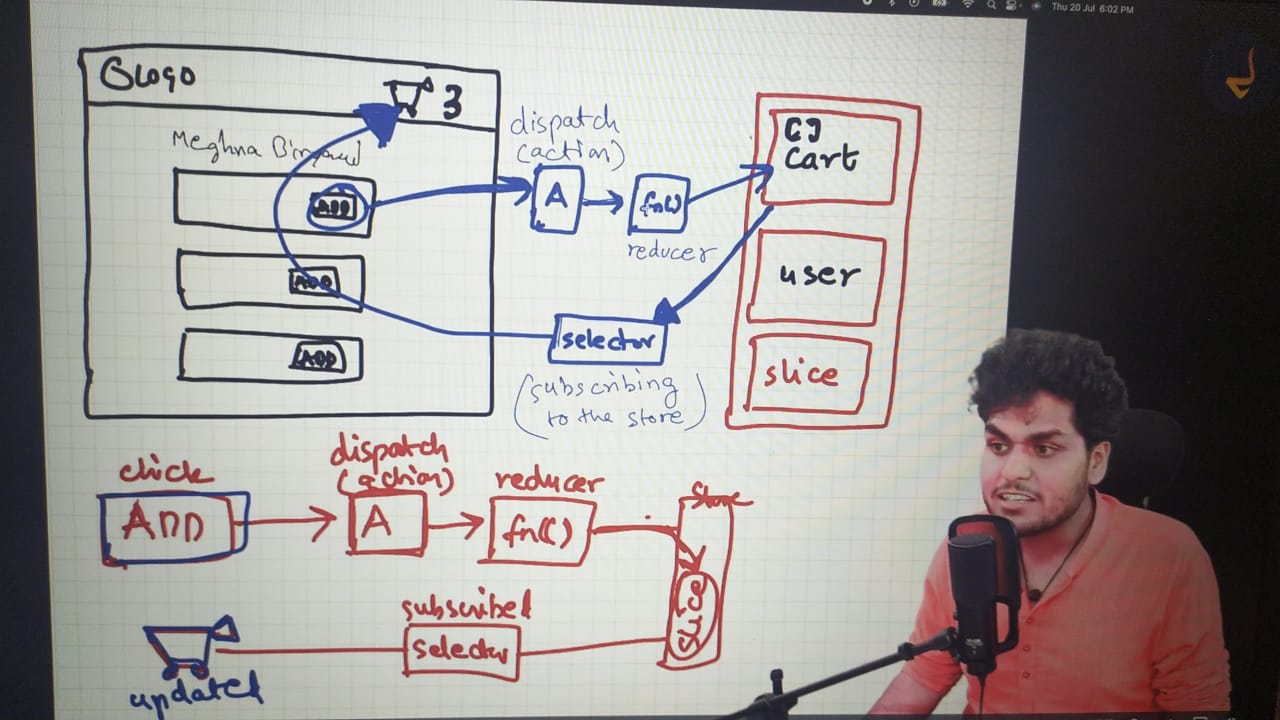 Thu 20 Jul 6:02 PM
Logo
3
Meghna
ADD
ADD
ADD
dispatch
(action)
A
fn()
reducer
selector
(subscribing
to the store)
Cart
user
slice
click
ADD
dispatch
(action)
A
reducer
fn()
Store
slice
subscribed
selector
updated